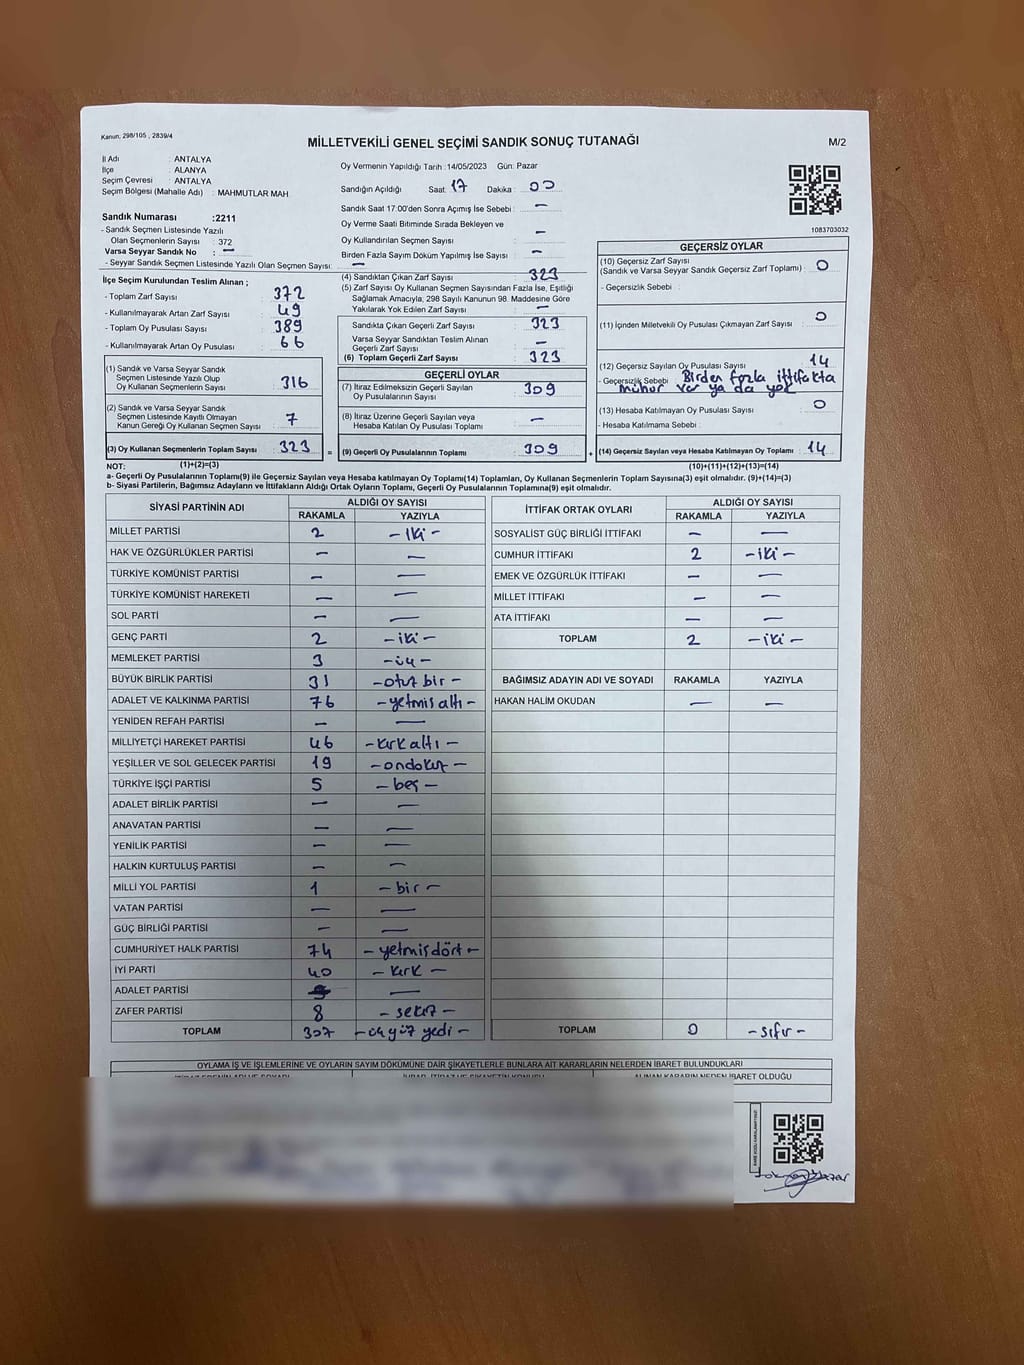 Kanun, 298/105 , 2839/4
MİLLETVEKİLİ GENEL SEÇİMİ SANDIK SONUÇ TUTANAĞI
M/2
İl Adı : ANTALYA
İlçe : ALANYA
Seçim Çevresi : ANTALYA
Seçim Bölgesi (Mahalle Adı) : MAHMUTLAR MAH.
Oy Vermenin Yapıldığı Tarih :14/05/2023 Gün: Pazar
Sandığın Açıldığı Saat: 17 Dakika : 00
Sandık Saat 17:00'den Sonra Açımış İse Sebebi : —
Oy Verme Saati Bitiminde Sırada Bekleyen ve
Oy Kullandırılan Seçmen Sayısı : —
Birden Fazla Sayım Döküm Yapılmış İse Sayısı : —
1083703032
Sandık Numarası :2211
- Sandık Seçmen Listesinde Yazılı
Olan Seçmenlerin Sayısı : 372
Varsa Seyyar Sandık No : —
- Seyyar Sandık Seçmen Listesinde Yazılı Olan Seçmen Sayısı: —
İlçe Seçim Kurulundan Teslim Alınan ;
- Toplam Zarf Sayısı : 372
- Kullanılmayarak Artan Zarf Sayısı : 49
- Toplam Oy Pusulası Sayısı : 389
- Kullanılmayarak Artan Oy Pusulası : 66
(1) Sandık ve Varsa Seyyar Sandık
Seçmen Listesinde Yazılı Olup
Oy Kullanan Seçmenlerin Sayısı : 316
(2) Sandık ve Varsa Seyyar Sandık
Seçmen Listesinde Kayıtlı Olmayan
Kanun Gereği Oy Kullanan Seçmen Sayısı : 7
(3) Oy Kullanan Seçmenlerin Toplam Sayısı : 323
(4) Sandıktan Çıkan Zarf Sayısı : 323
(5) Zarf Sayısı Oy Kullanan Seçmen Sayısından Fazla İse, Eşitliği
Sağlamak Amacıyla, 298 Sayılı Kanunun 98. Maddesine Göre
Yakılarak Yok Edilen Zarf Sayısı : —
Sandıkta Çıkan Geçerli Zarf Sayısı : 323
Varsa Seyyar Sandıktan Teslim Alınan
Geçerli Zarf Sayısı : —
(6) Toplam Geçerli Zarf Sayısı : 323
GEÇERLİ OYLAR
(7) İtiraz Edilmeksizin Geçerli Sayılan
Oy Pusulalarının Sayısı : 309
(8) İtiraz Üzerine Geçerli Sayılan veya
Hesaba Katılan Oy Pusulası Toplamı : —
= (9) Geçerli Oy Pusulalarının Toplamı : 309
GEÇERSİZ OYLAR
(10) Geçersiz Zarf Sayısı
(Sandık ve Varsa Seyyar Sandık Geçersiz Zarf Toplamı) : 0
- Geçersizlik Sebebi :
(11) İçinden Milletvekili Oy Pusulası Çıkmayan Zarf Sayısı : 0
(12) Geçersiz Sayılan Oy Pusulası Sayısı : 14
- Geçersizlik Sebebi : Birden fazla ittifakta
mühür var ya da yok
(13) Hesaba Katılmayan Oy Pusulası Sayısı : 0
- Hesaba Katılmama Sebebi :
+ (14) Geçersiz Sayılan veya Hesaba Katılmayan Oy Toplamı : 14
NOT: (1)+(2)=(3) (10)+(11)+(12)+(13)=(14)
a- Geçerli Oy Pusulalarının Toplamı(9) ile Geçersiz Sayılan veya Hesaba katılmayan Oy Toplamı(14) Toplamları, Oy Kullanan Seçmenlerin Toplam Sayısına(3) eşit olmalıdır. (9)+(14)=(3)
b- Siyasi Partilerin, Bağımsız Adayların ve İttifakların Aldığı Ortak Oyların Toplamı, Geçerli Oy Pusulalarının Toplamına(9) eşit olmalıdır.
SİYASİ PARTİNİN ADI ALDIĞI OY SAYISI
RAKAMLA YAZIYLA
MİLLET PARTİSİ 2 - iki -
HAK VE ÖZGÜRLÜKLER PARTİSİ — —
TÜRKİYE KOMÜNİST PARTİSİ — —
TÜRKİYE KOMÜNİST HAREKETİ — —
SOL PARTİ — —
GENÇ PARTİ 2 - iki -
MEMLEKET PARTİSİ 3 - üç -
BÜYÜK BİRLİK PARTİSİ 31 - otuz bir -
ADALET VE KALKINMA PARTİSİ 76 - yetmiş altı -
YENİDEN REFAH PARTİSİ — —
MİLLİYETÇİ HAREKET PARTİSİ 46 - kırk altı -
YEŞİLLER VE SOL GELECEK PARTİSİ 19 - ondokuz -
TÜRKİYE İŞÇİ PARTİSİ 5 - beş -
ADALET BİRLİK PARTİSİ — —
ANAVATAN PARTİSİ — —
YENİLİK PARTİSİ — —
HALKIN KURTULUŞ PARTİSİ — —
MİLLİ YOL PARTİSİ 1 - bir -
VATAN PARTİSİ — —
GÜÇ BİRLİĞİ PARTİSİ — —
CUMHURİYET HALK PARTİSİ 74 - yetmiş dört -
İYİ PARTİ 40 - kırk -
ADALET PARTİSİ —
ZAFER PARTİSİ 8 - sekiz -
TOPLAM 307 - üçyüz yedi -
İTTİFAK ORTAK OYLARI ALDIĞI OY SAYISI
RAKAMLA YAZIYLA
SOSYALİST GÜÇ BİRLİĞİ İTTİFAKI — —
CUMHUR İTTİFAKI 2 - iki -
EMEK VE ÖZGÜRLÜK İTTİFAKI — —
MİLLET İTTİFAKI — —
ATA İTTİFAKI — —
TOPLAM 2 - iki -
BAĞIMSIZ ADAYIN ADI VE SOYADI RAKAMLA YAZIYLA
HAKAN HALİM OKUDAN — —
TOPLAM 0 - sıfır -
OYLAMA İŞ VE İŞLEMLERİNE VE OYLARIN SAYIM DÖKÜMÜNE DAİR ŞİKAYETLERLE BUNLARA AİT KARARLARIN NELERDEN İBARET BULUNDUKLARI
ALINAN KARARIN NEDEN İBARET OLDUĞU